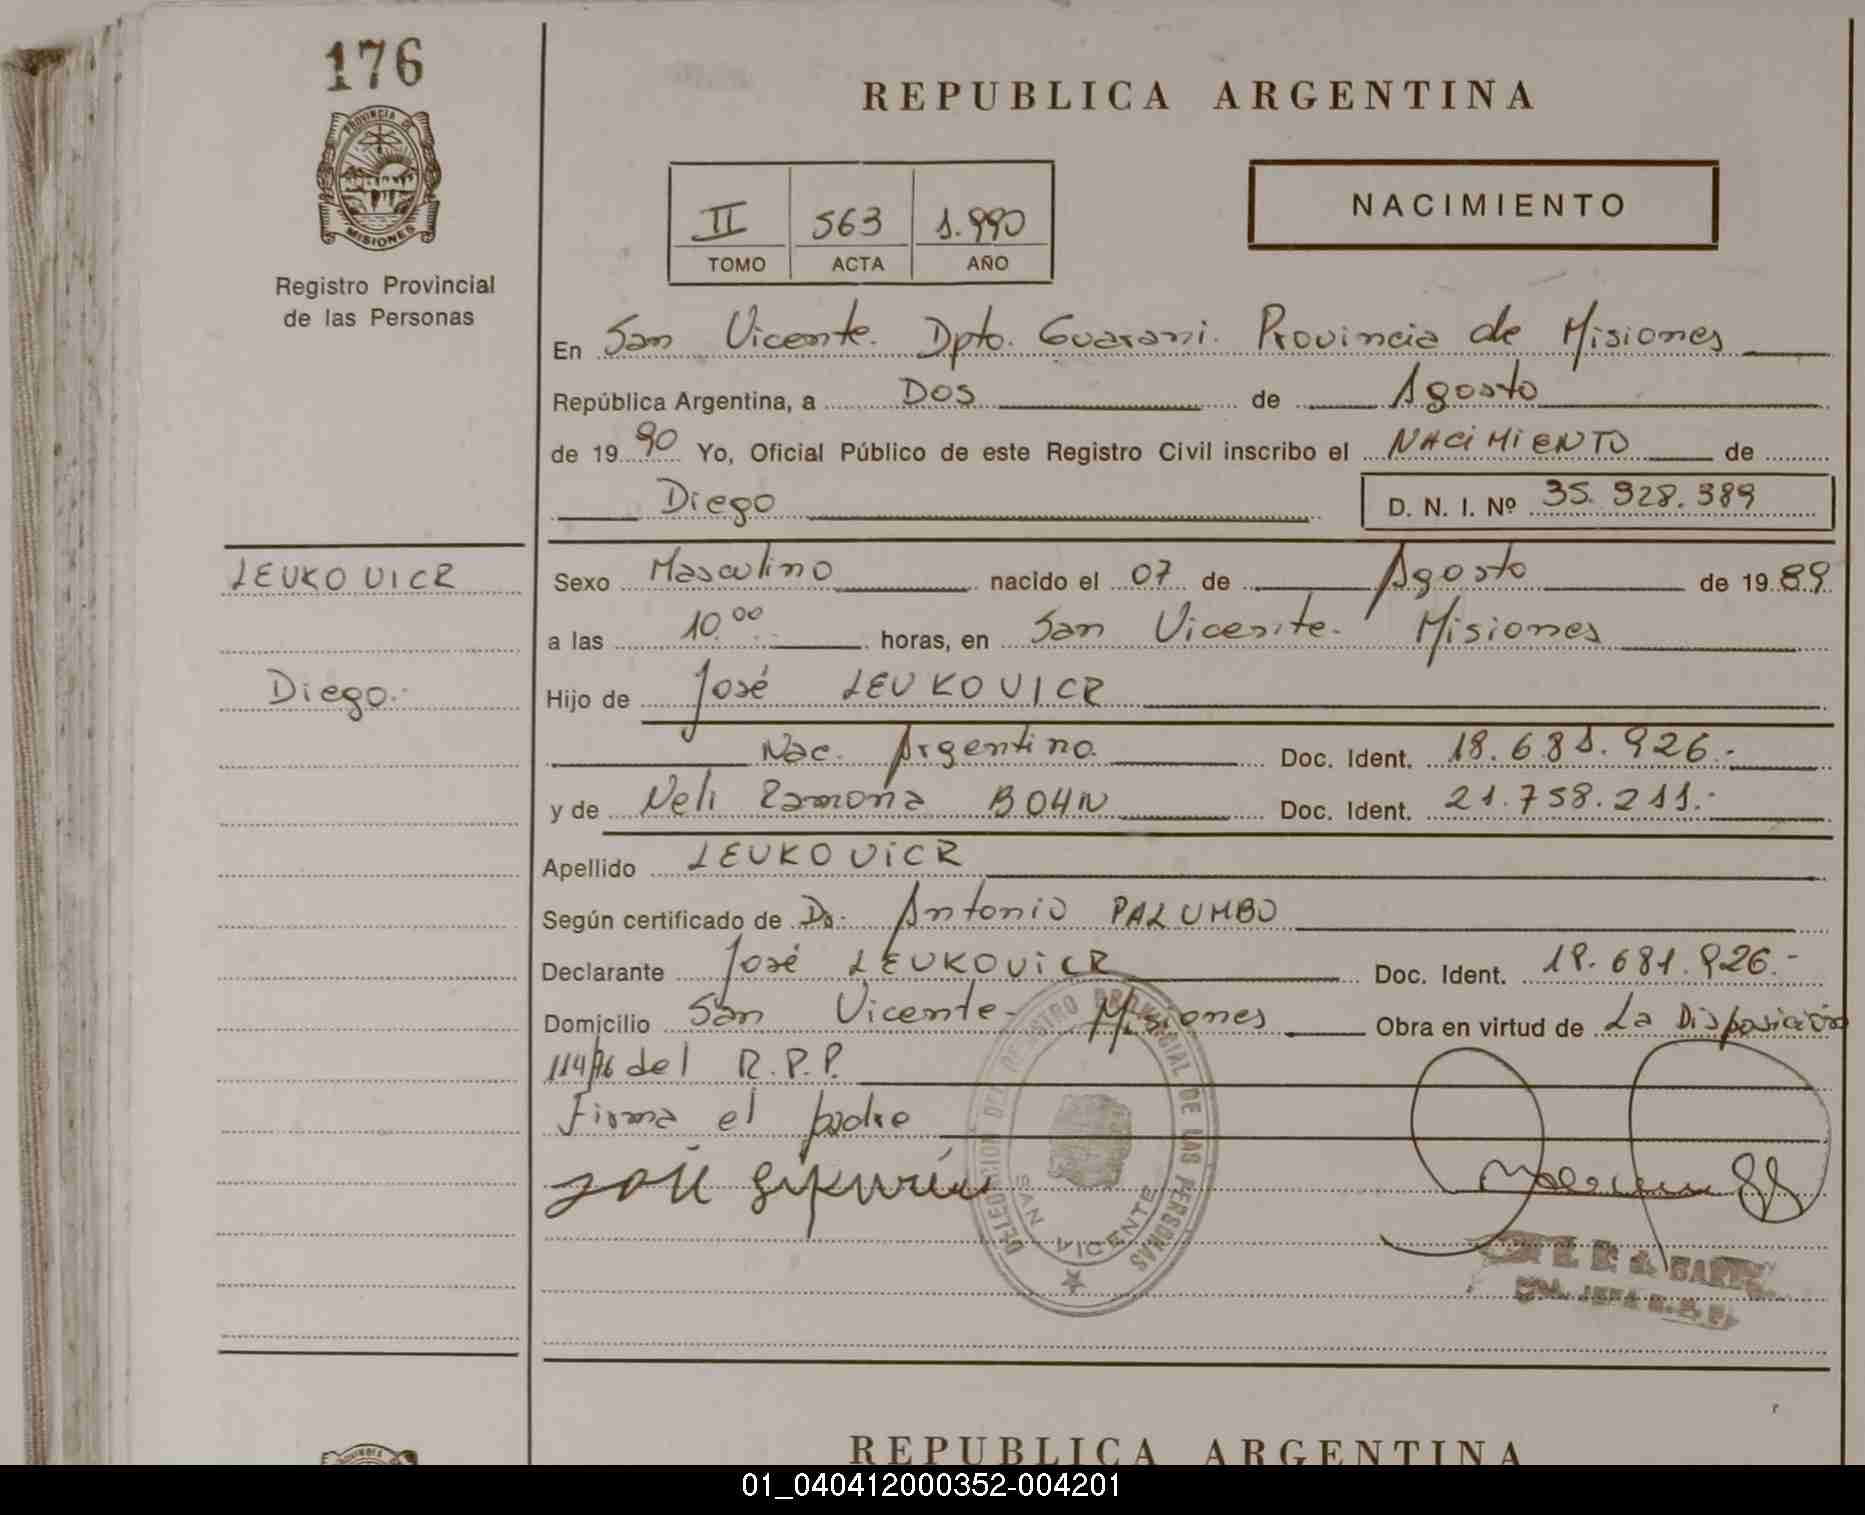 176
PROVINCIA DE
MISIONES
Registro Provincial
de las Personas
REPUBLICA ARGENTINA
II 563 1.990
TOMO ACTA AÑO
NACIMIENTO
En San Vicente. Dpto. Guarani. Provincia de Misiones
República Argentina, a Dos de Agosto
de 19 90 Yo, Oficial Público de este Registro Civil inscribo el NACIMIENTO de
Diego D. N. I. Nº 35.928.389
LEUKOVICR
Diego.-
Sexo Masculino nacido el 07 de Agosto de 19 89
a las 10.00 horas, en San Vicente- Misiones
Hijo de José LEUKOVICR
Nac. Argentino. Doc. Ident. 18.681.926.-
y de Neli Ramona BOHN Doc. Ident. 21.758.211.-
Apellido LEUKOVICR
Según certificado de Dr. Antonio PALUMBO
Declarante José LEUKOVICR Doc. Ident. 18.681.926.-
Domicilio San Vicente- Misiones Obra en virtud de La Disposición
114/76 del R.P.P.
Firma el padre
DELEGACION DEL REGISTRO PROVINCIAL DE LAS PERSONAS
SAN VICENTE
REPUBLICA ARGENTINA
01_040412000352-004201